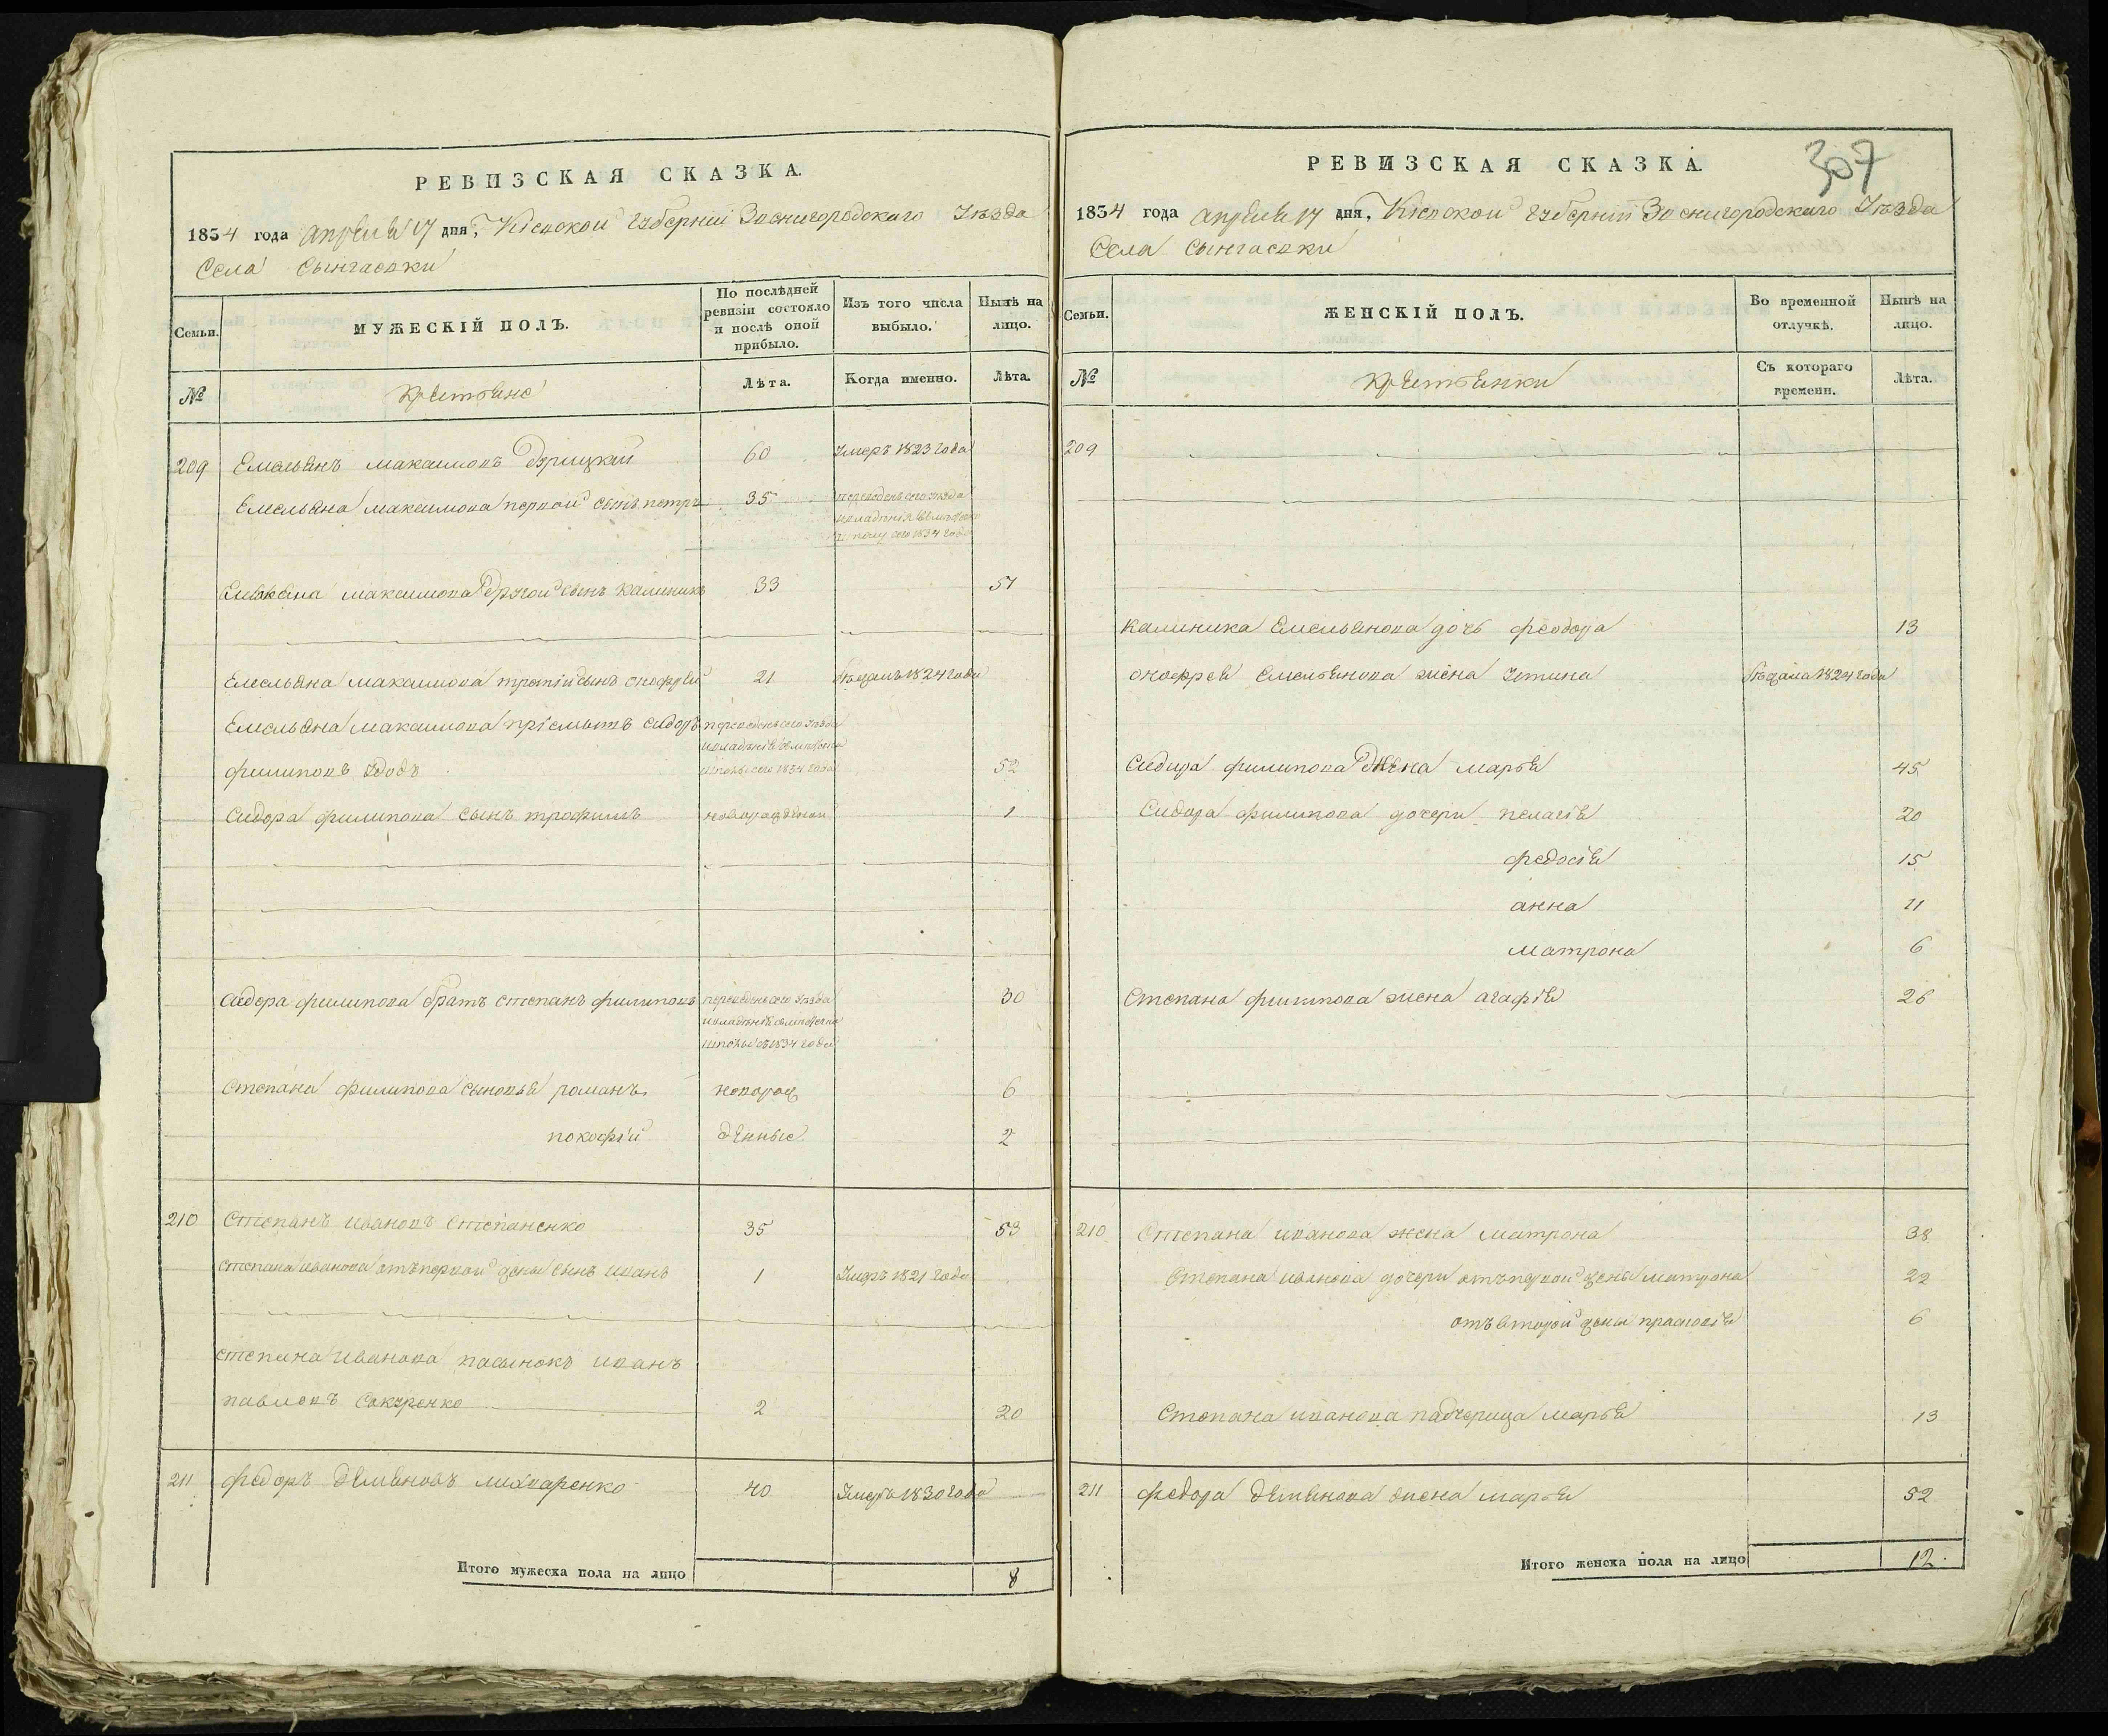 РЕВИЗСКАЯ СКАЗКА.
1834 года апреля 17 дня, Киевской губерніи Звенигородскаго Уѣзда
Села
Семьи.
МУЖЕСКІЙ ПОЛЪ.
По послѣдней ревизіи состояло и послѣ оной прибыло.
Изъ того числа выбыло.
Нынѣ на лицо.
№
Крестьяне
Лѣта.
Когда именно.
Лѣта.
209 Емельянъ Максимовъ 60 Умеръ 1823 года
Емельяна Максимова первой сынъ Петръ 35 переведенъ сего уѣзда
1834 года
Емельяна Максимова другой сынъ Калиникъ 33 51
Емельяна Максимова третій сынъ Онофрей 21 бѣжалъ 1824 года
Емельяна Максимова пріемышъ Сидоръ переведенъ сего уѣзда
Филиповъ 1834 года 52
Сидора Филипова сынъ Трофимъ новорожденой 1
Сидора Филипова братъ Степанъ Филиповъ переведенъ сего уѣзда 30
1834 года
Степана Филипова сыновья Романъ новорож 6
покофій денные 2
210 Степанъ Ивановъ Степаненко 35 53
Степана Иванова отъ первой жены сынъ Иванъ 1 Умеръ 1821 года
Степана Иванова пасынокъ Иванъ
Павловъ Сокуренко 2 20
211 Федоръ Демяновъ 40 Умеръ 1830 года
Итого мужеска пола на лицо 8
307
РЕВИЗСКАЯ СКАЗКА.
1834 года апреля 17 дня, Киевской губерніи Звенигородскаго Уѣзда
Села
Семьи.
ЖЕНСКІЙ ПОЛЪ.
Во временной отлучкѣ.
Нынѣ на лицо.
№
Крестьянки
Съ котораго времени.
Лѣта.
209
Калиника Емельянова дочь Феодора 13
Онофрея Емельянова жена Устина бѣжала 1824 года
Сидора Филипова жена Марья 45
Сидора Филипова дочери Пелагія 20
Федосія 15
Анна 11
Матрона 6
Степана Филипова жена Агафія 26
210 Степана Иванова жена Матрона 38
Степана Иванова дочери отъ первой жены Матрона 22
отъ второй жены Прасковія 6
Степана Иванова падчерица Марья 13
211 Федора Демянова жена Марья 52
Итого женска пола на лицо 12.